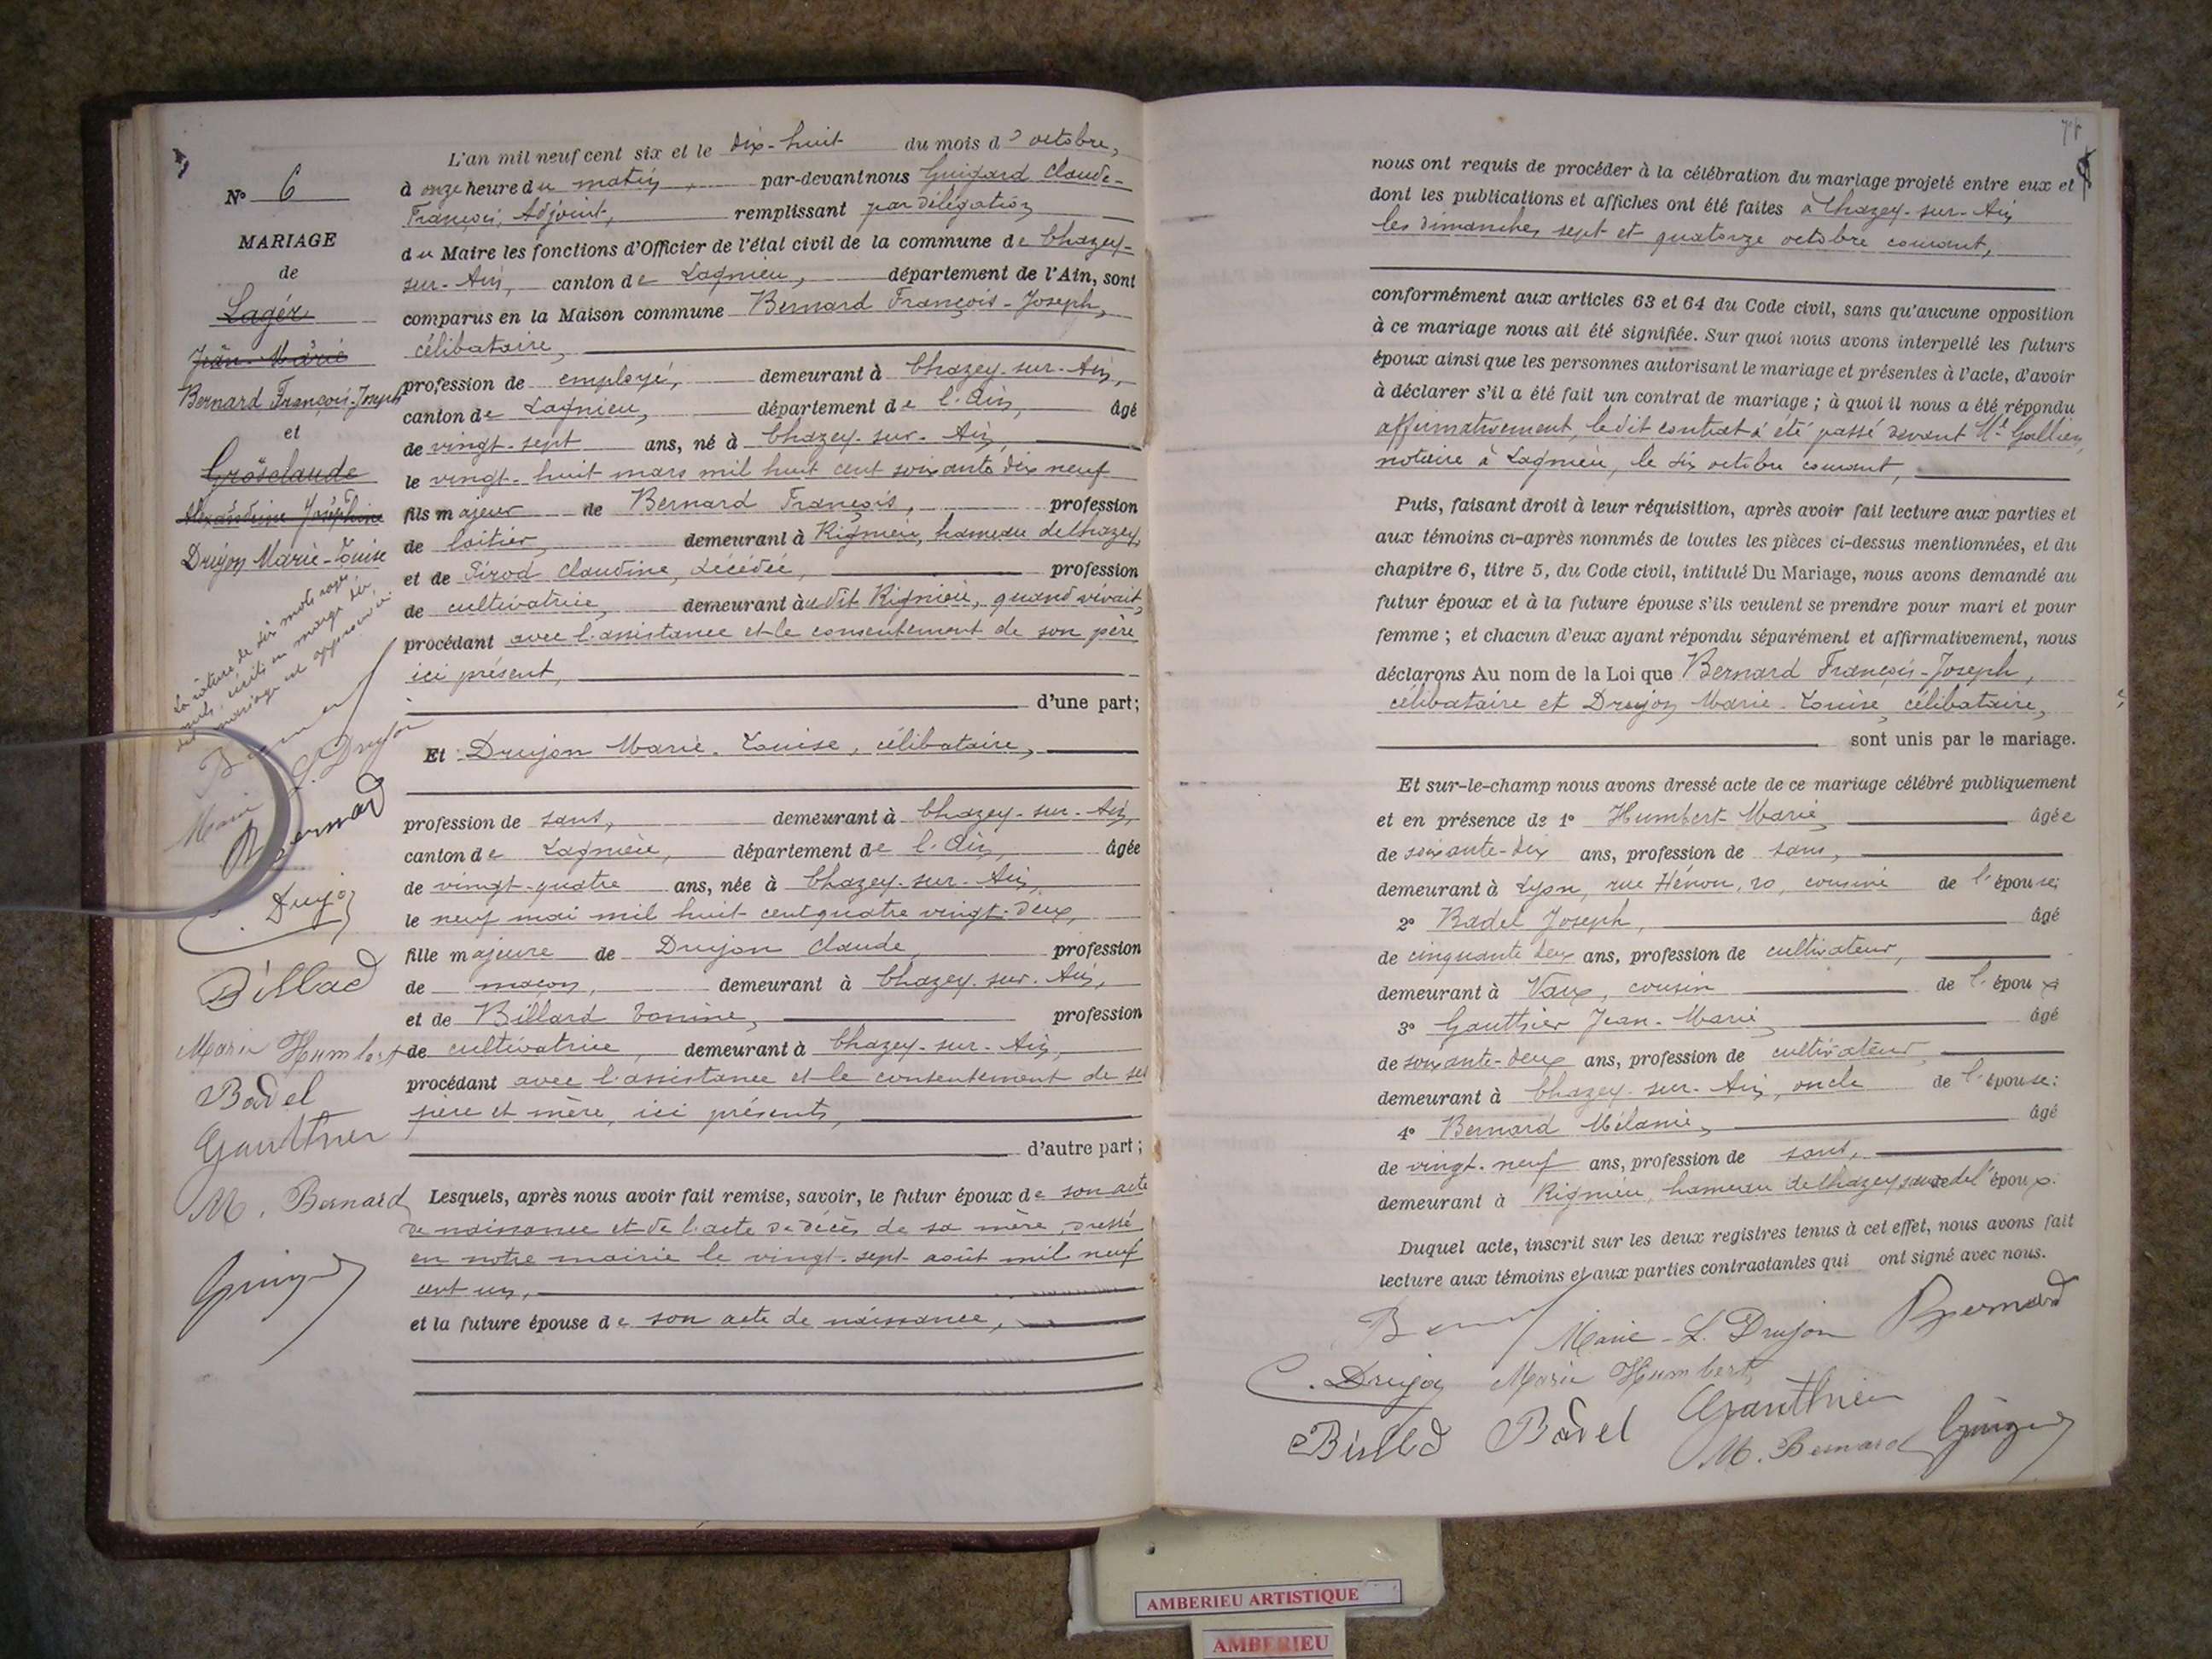 N° 6
MARIAGE
de
Lagér
Jean-Marie
Bernard François-Joseph
et
Grosclaude
Alexandrine Joséphine
Drujon Marie-Louise
La rature de six mots rayés
nuls, écrits en marge du
dit mariage est approuvée
Bernard
Marie L. Drujon
Bernard
C. Drujon
Billard
Marie Humbert
Badel
Gauthier
M. Bernard
L'an mil neuf cent six et le dix-huit du mois d'octobre,
à onze heure du matin, par-devant nous Guigard Claude-
François, Adjoint, remplissant par délégation
du Maire les fonctions d'Officier de l'état civil de la commune de Chazey-
sur-Ain, canton de Lagnieu, département de l'Ain, sont
comparus en la Maison commune Bernard François-Joseph,
célibataire,
profession de employé, demeurant à Chazey-sur-Ain,
canton de Lagnieu, département de l'Ain, âgé
de vingt-sept ans, né à Chazey-sur-Ain,
le vingt-huit mars mil huit cent soixante dix neuf
fils majeur de Bernard François, profession
de laitier, demeurant à Rignieu, hameau de Chazey,
et de Pirod Claudine, décédée, profession
de cultivatrice, demeurant audit Rignieu, quand vivait,
procédant avec l'assistance et le consentement de son père
ici présent,
d'une part;
Et Drujon Marie-Louise, célibataire,
profession de sans, demeurant à Chazey-sur-Ain,
canton de Lagnieu, département de l'Ain, âgée
de vingt-quatre ans, née à Chazey-sur-Ain,
le neuf mai mil huit cent quatre vingt-deux,
fille majeure de Drujon Claude, profession
de maçon, demeurant à Chazey-sur-Ain,
et de Billard Tonine, profession
de cultivatrice, demeurant à Chazey-sur-Ain,
procédant avec l'assistance et le consentement de ses
père et mère, ici présents,
d'autre part;
Lesquels, après nous avoir fait remise, savoir, le futur époux de son acte
de naissance et de l'acte de décès de sa mère, dressé
en notre mairie le vingt-sept août mil neuf
cent un,
et la future épouse de son acte de naissance,
nous ont requis de procéder à la célébration du mariage projeté entre eux et
dont les publications et affiches ont été faites à Chazey-sur-Ain
les dimanches sept et quatorze octobre courant,
conformément aux articles 63 et 64 du Code civil, sans qu'aucune opposition
à ce mariage nous ait été signifiée. Sur quoi nous avons interpellé les futurs
époux ainsi que les personnes autorisant le mariage et présentes à l'acte, d'avoir
à déclarer s'il a été fait un contrat de mariage; à quoi il nous a été répondu
affirmativement, ledit contrat a été passé devant Me Gallien,
notaire à Lagnieu, le dix octobre courant,
Puis, faisant droit à leur réquisition, après avoir fait lecture aux parties et
aux témoins ci-après nommés de toutes les pièces ci-dessus mentionnées, et du
chapitre 6, titre 5, du Code civil, intitulé Du Mariage, nous avons demandé au
futur époux et à la future épouse s'ils veulent se prendre pour mari et pour
femme; et chacun d'eux ayant répondu séparément et affirmativement, nous
déclarons Au nom de la Loi que Bernard François-Joseph,
célibataire et Drujon Marie-Louise, célibataire,
sont unis par le mariage.
Et sur-le-champ nous avons dressé acte de ce mariage célébré publiquement
et en présence de 1° Humbert Marie âgée
de soixante-dix ans, profession de sans,
demeurant à Lyon, rue Hénon, 20, cousine de l'épouse;
2° Badel Joseph, âgé
de cinquante deux ans, profession de cultivateur,
demeurant à Vaux, cousin de l'époux
3° Gauthier Jean-Marie âgé
de soixante-deux ans, profession de cultivateur,
demeurant à Chazey-sur-Ain, oncle de l'épouse;
4° Bernard Mélanie, âgé
de vingt-neuf ans, profession de sans,
demeurant à Rignieu, hameau de Chazey, sœur de l'époux.
Duquel acte, inscrit sur les deux registres tenus à cet effet, nous avons fait
lecture aux témoins et aux parties contractantes qui ont signé avec nous.
Marie-L. Drujon Bernard
C. Drujon Marie Humbert
Billard Badel Gauthier
M. Bernard
AMBERIEU ARTISTIQUE
AMBERIEU